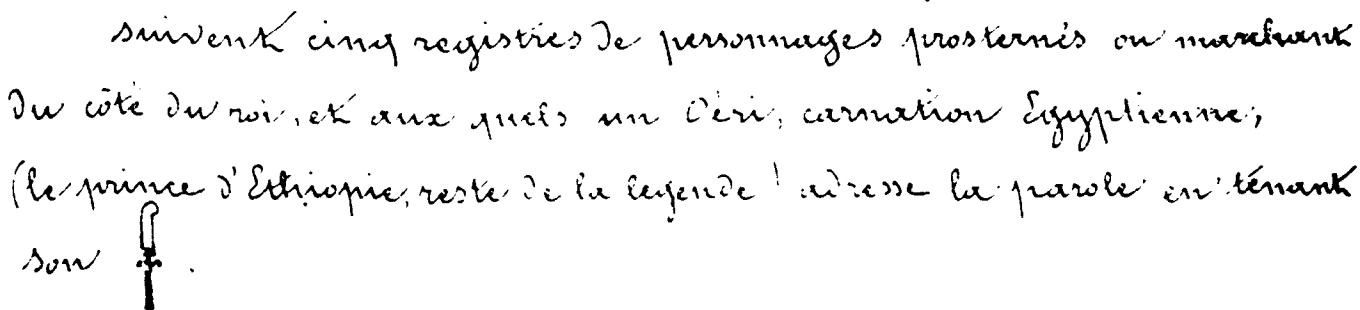 suivent cinq registres de personnages prosternés ou marchant
du côté du roi, et aux quels un Oëri, carnation Egyptienne,
(le prince d'Ethiopie, reste de la legende) adresse la parole en ténant
son .